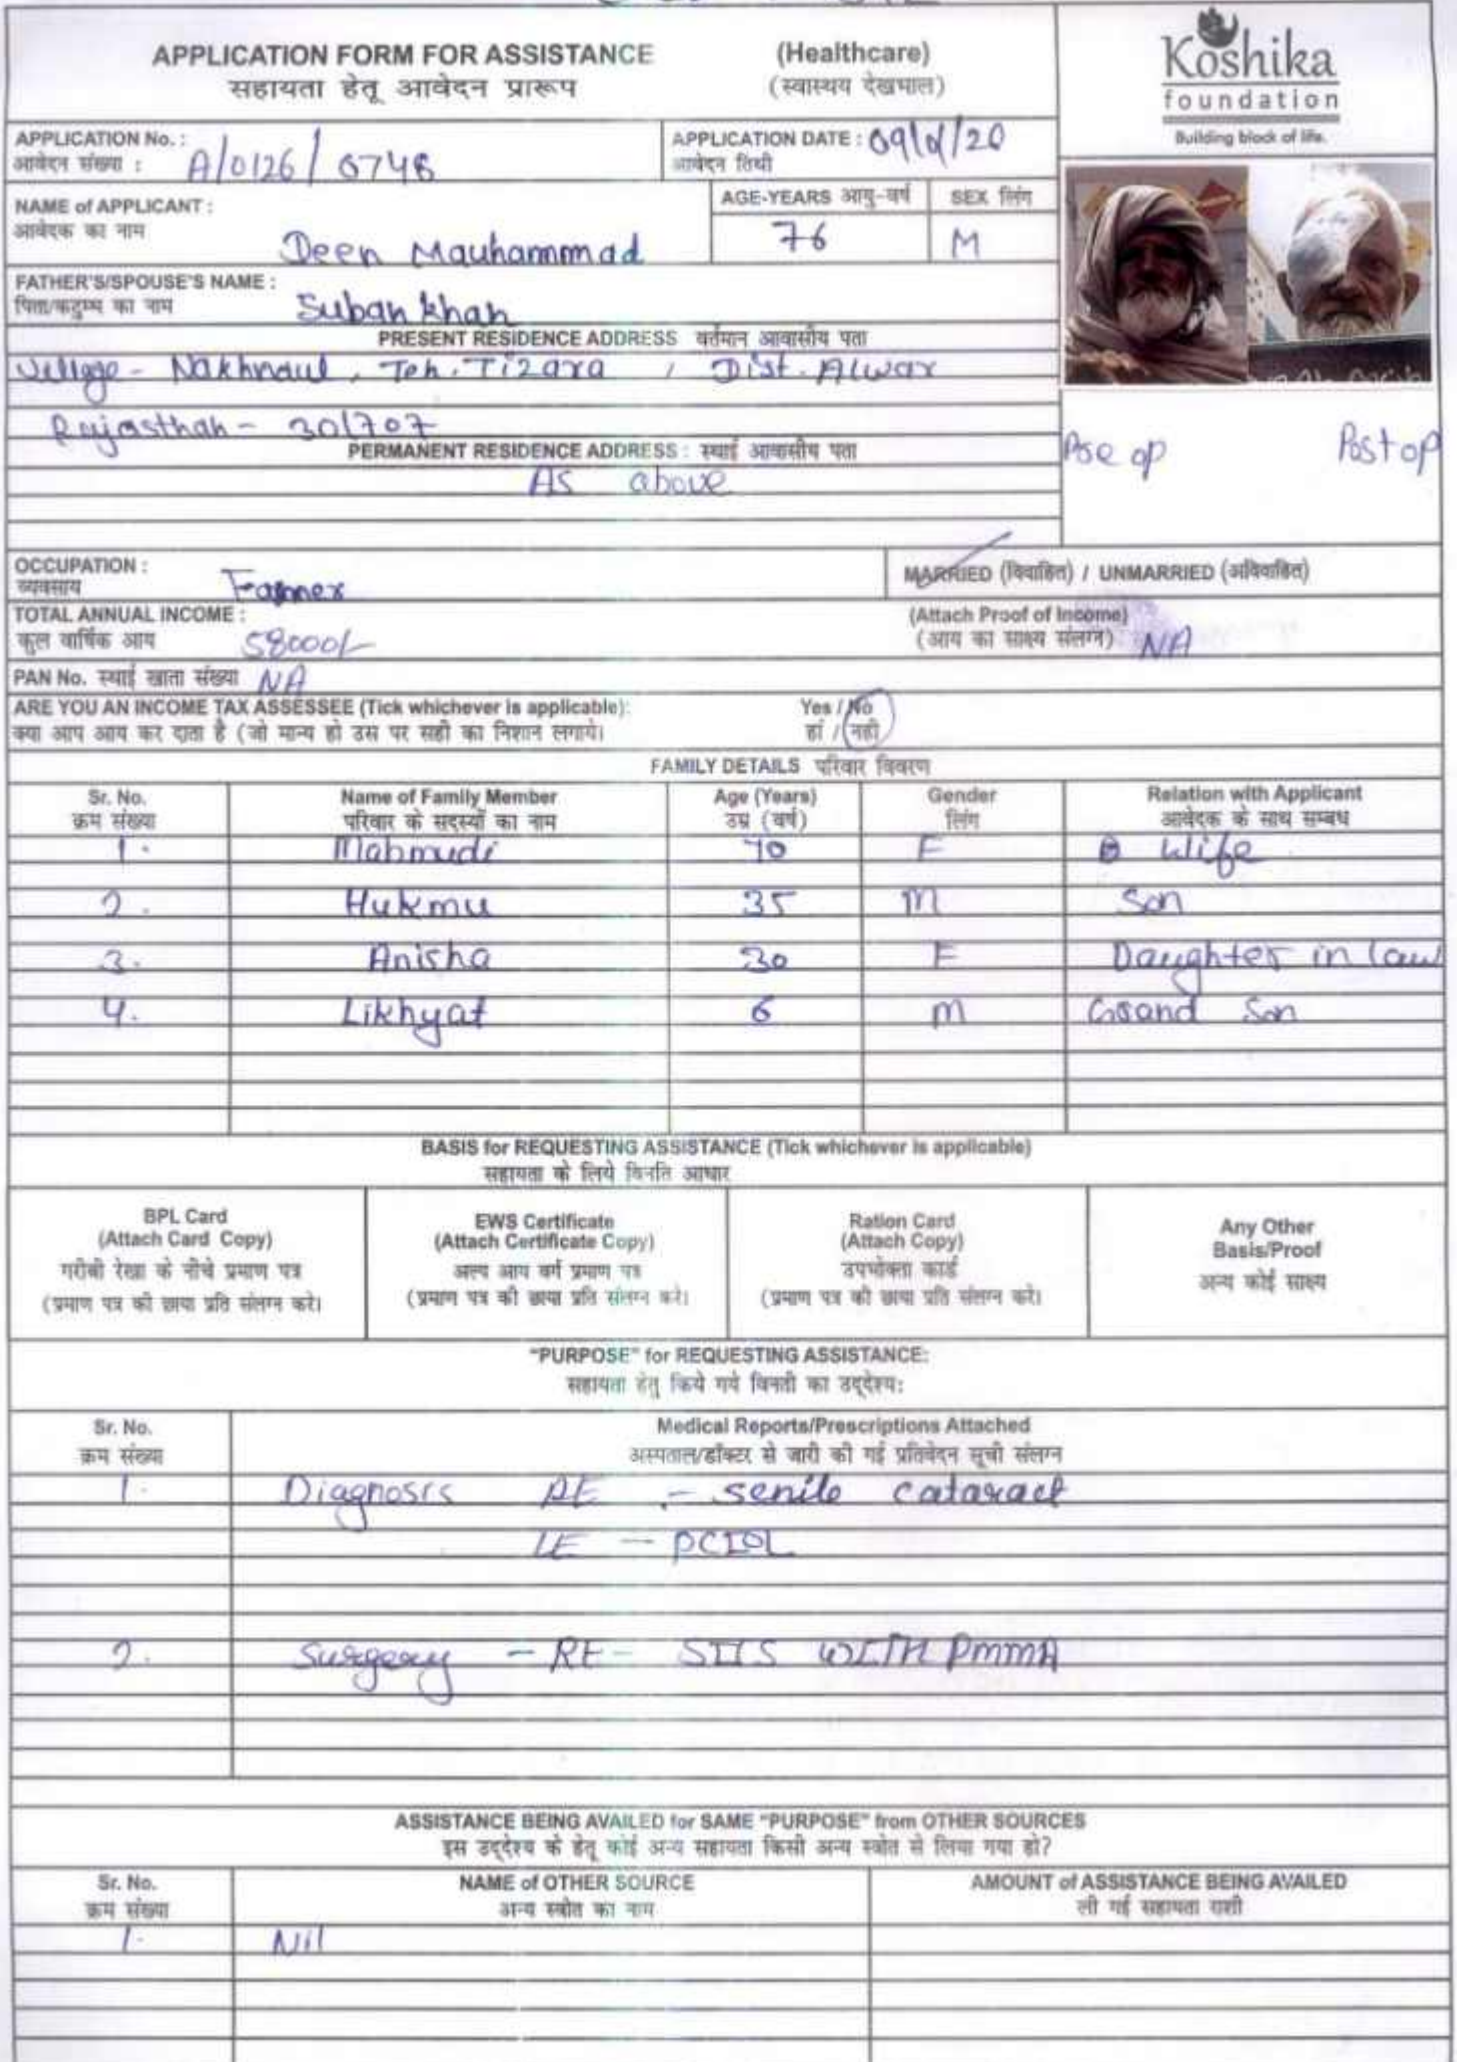 APPLICATION FORM FOR ASSISTANCE (Healthcare)
सहायता हेतू आवेदन प्रारूप (स्वास्थय देखभाल)
Koshika
foundation
Building block of life.
APPLICATION No. : A/0126/0746
आवेदन संख्या :
APPLICATION DATE : 09/ /20
आवेदन तिथी
NAME of APPLICANT : Deen Mauhammad
आवेदक का नाम
AGE-YEARS आयु-वर्ष 76
SEX लिंग M
FATHER'S/SPOUSE'S NAME : Suban khan
पिता/कटुम्ब का नाम
PRESENT RESIDENCE ADDRESS वर्तमान आवासीय पता
Village - Nakhnaul, Teh. Tizara, Dist. Alwar
Rajasthan - 301707
PERMANENT RESIDENCE ADDRESS : स्थाई आवासीय पता
As above
Pre op Post op
OCCUPATION : Farmer
व्यवसाय
MARRIED (विवाहित) / UNMARRIED (अविवाहित)
TOTAL ANNUAL INCOME : 58000/-
कुल वार्षिक आय
(Attach Proof of Income)
(आय का साक्ष्य संलग्न) NA
PAN No. स्थाई खाता संख्या NA
ARE YOU AN INCOME TAX ASSESSEE (Tick whichever is applicable): Yes / No
क्या आप आय कर दाता है (जो मान्य हो उस पर सही का निशान लगाये। हां / नही
FAMILY DETAILS परिवार विवरण
Sr. No. Name of Family Member Age (Years) Gender Relation with Applicant
क्रम संख्या परिवार के सदस्यों का नाम उम्र (वर्ष) लिंग आवेदक के साथ सम्बध
1. Mahmudi 70 F Wife
2. Hukmu 35 M Son
3. Anisha 30 F Daughter in law
4. Likhyat 6 M Grand Son
BASIS for REQUESTING ASSISTANCE (Tick whichever is applicable)
सहायता के लिये विनति आधार
BPL Card
(Attach Card Copy)
गरीबी रेखा के नीचे प्रमाण पत्र
(प्रमाण पत्र की छाया प्रति संलग्न करे।
EWS Certificate
(Attach Certificate Copy)
अल्प आय वर्ग प्रमाण पत्र
(प्रमाण पत्र की छाया प्रति संलग्न करे।
Ration Card
(Attach Copy)
उपभोक्ता कार्ड
(प्रमाण पत्र की छाया प्रति संलग्न करे।
Any Other
Basis/Proof
अन्य कोई साक्ष्य
"PURPOSE" for REQUESTING ASSISTANCE:
सहायता हेतु किये गये विनती का उद्देश्य:
Sr. No. Medical Reports/Prescriptions Attached
क्रम संख्या अस्पताल/डॉक्टर से जारी की गई प्रतिवेदन सूची संलग्न
1. Diagnosis RE - senile cataract
LE - PCIOL
2. Surgery - RE - SICS WITH PMMA
ASSISTANCE BEING AVAILED for SAME "PURPOSE" from OTHER SOURCES
इस उद्देश्य के हेतू कोई अन्य सहायता किसी अन्य स्त्रोत से लिया गया हो?
Sr. No. NAME of OTHER SOURCE AMOUNT of ASSISTANCE BEING AVAILED
क्रम संख्या अन्य स्त्रोत का नाम ली गई सहायता राशी
1. Nil